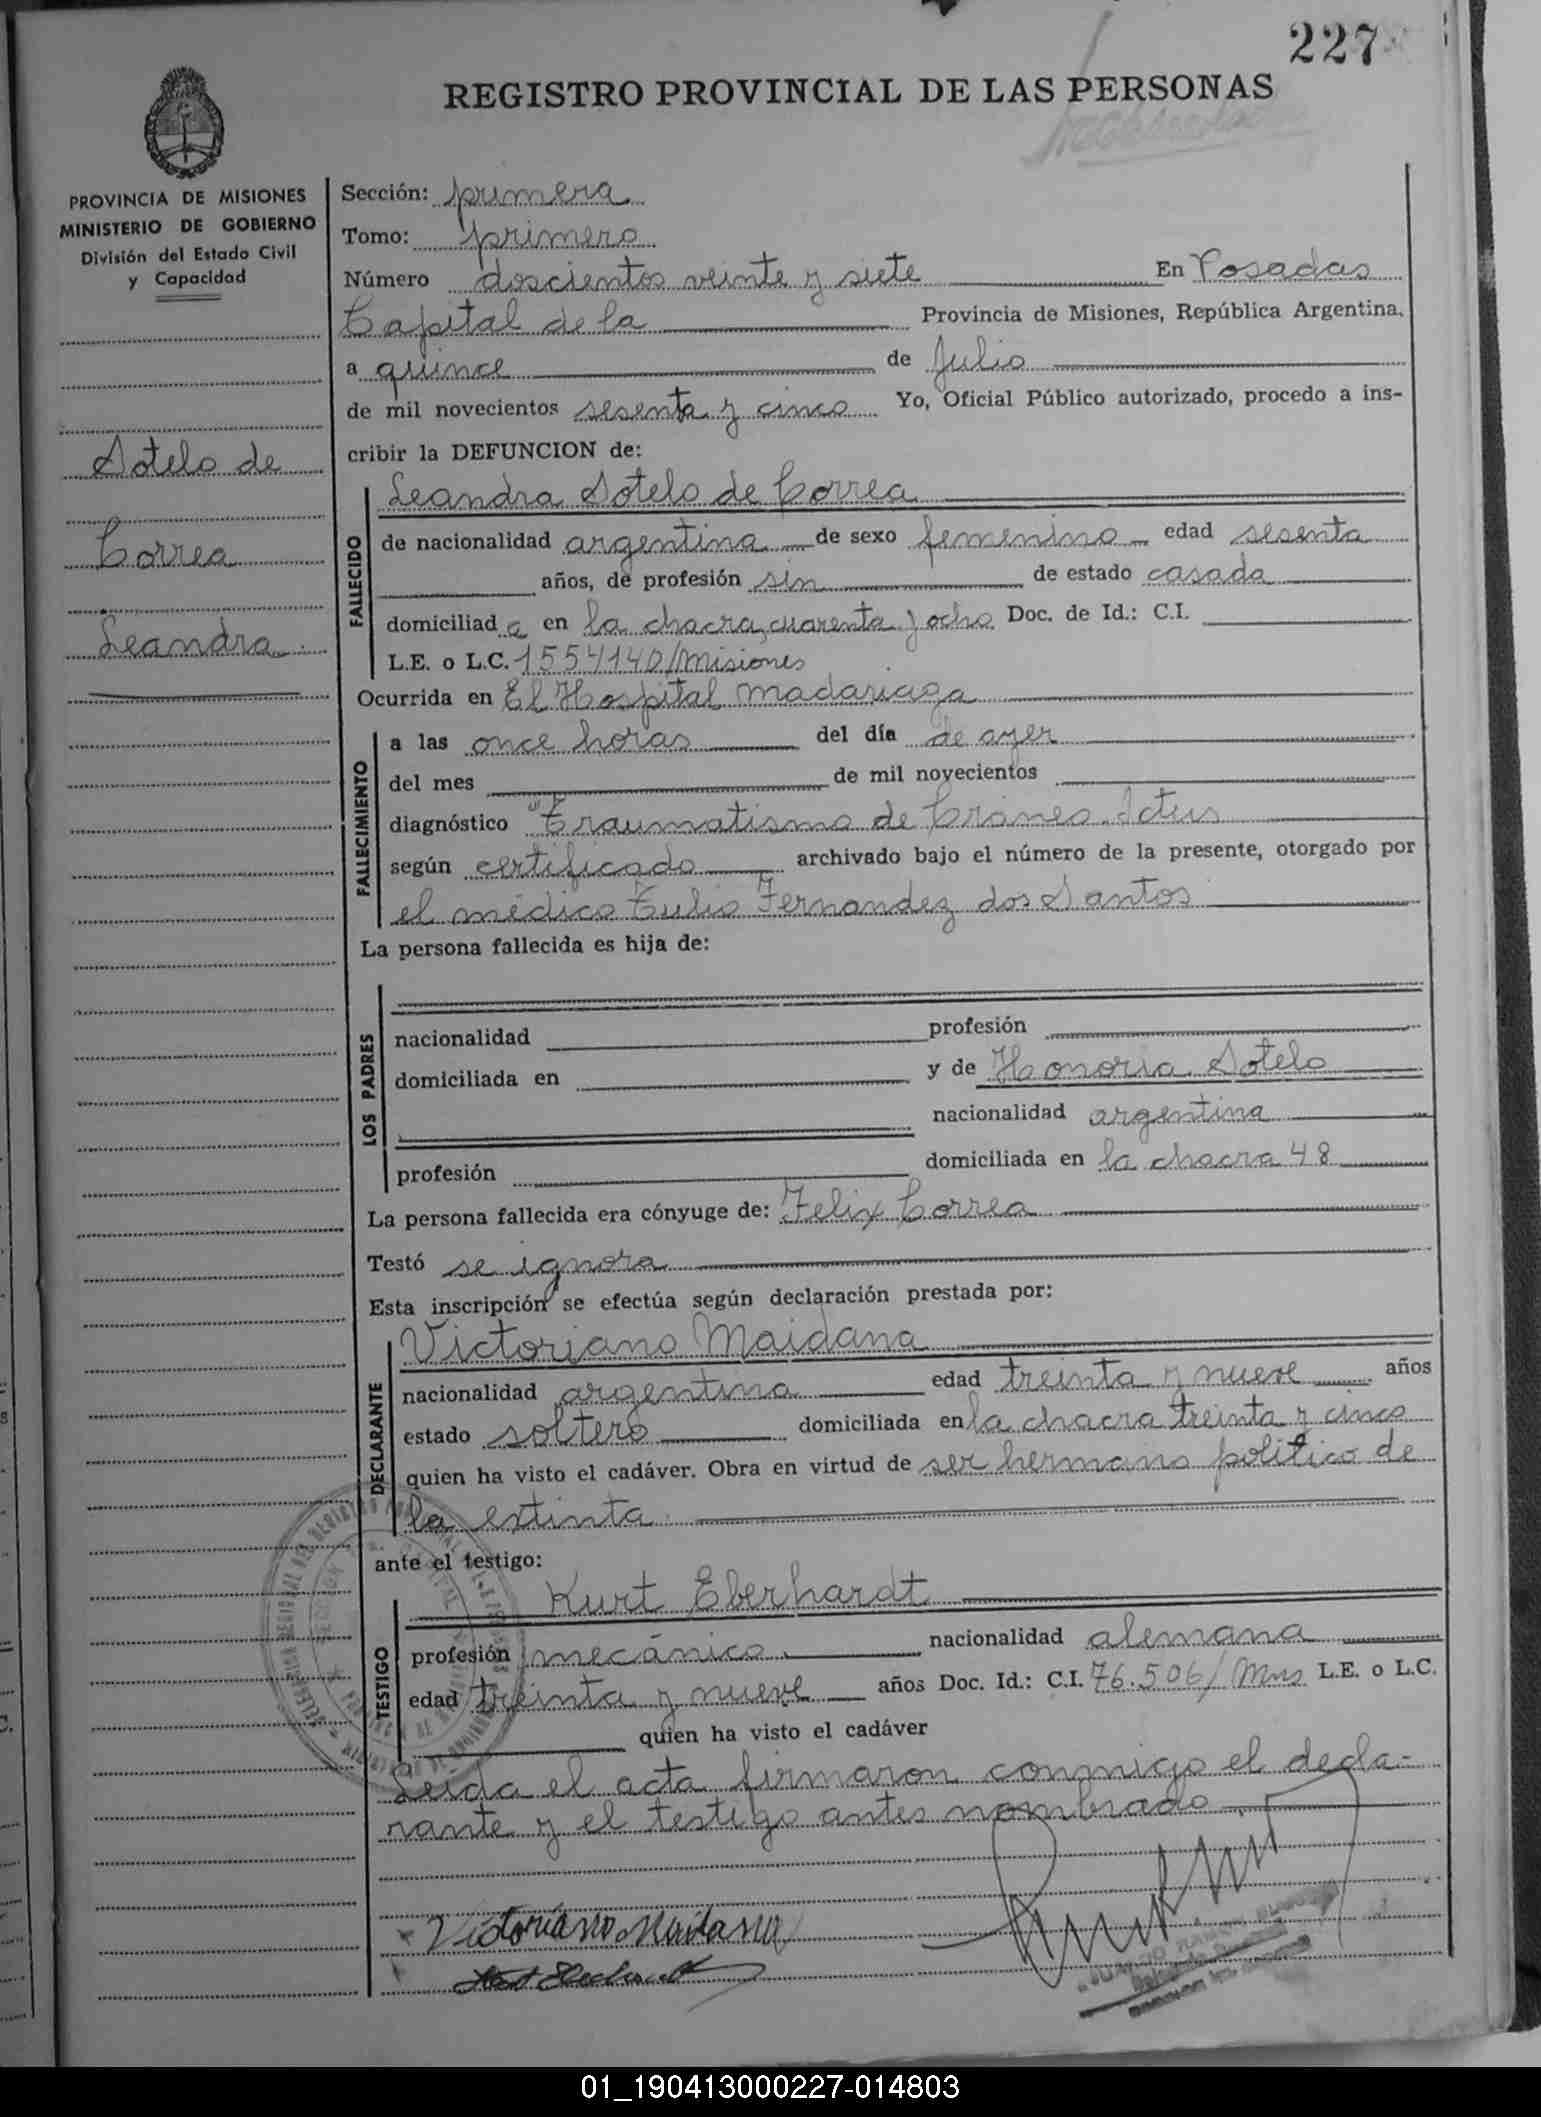 227
REGISTRO PROVINCIAL DE LAS PERSONAS
PROVINCIA DE MISIONES
MINISTERIO DE GOBIERNO
División del Estado Civil
y Capacidad
Sotelo de
Correa
Leandra
Sección: primera
Tomo: primero
Número doscientos veinte y siete En Posadas
Capital de la Provincia de Misiones, República Argentina,
a quince de Julio
de mil novecientos sesenta y cinco Yo, Oficial Público autorizado, procedo a ins-
cribir la DEFUNCION de:
FALLECIDO
Leandra Sotelo de Correa
de nacionalidad argentina de sexo femenino edad sesenta
años, de profesión sin de estado casada
domiciliad a en la chacra cuarenta y ocho Doc. de Id.: C.I.
L.E. o L.C. 1554140/Misiones
Ocurrida en El Hospital Madariaga
FALLECIMIENTO
a las once horas del día de ayer
del mes de mil novecientos
diagnóstico "Traumatismo de Cráneo. Ictus
según certificado archivado bajo el número de la presente, otorgado por
el médico Tulio Fernandez dos Santos
La persona fallecida es hija de:
LOS PADRES
nacionalidad profesión
domiciliada en y de Honoria Sotelo
nacionalidad argentina
profesión domiciliada en la chacra 48
La persona fallecida era cónyuge de: Felix Correa
Testó se ignora
Esta inscripción se efectúa según declaración prestada por:
DECLARANTE
Victoriano Maidana
nacionalidad argentina edad treinta y nueve años
estado soltero domiciliada en la chacra treinta y cinco
quien ha visto el cadáver. Obra en virtud de ser hermano politico de
la extinta
ante el testigo:
TESTIGO
Kurt Eberhardt
profesión mecánico nacionalidad alemana
edad treinta y nueve años Doc. Id.: C.I. 76.506/Mns L.E. o L.C.
quien ha visto el cadáver
Leida el acta firmaron conmigo el decla-
rante y el testigo antes nombrado
Victoriano Maidana
01_190413000227-014803